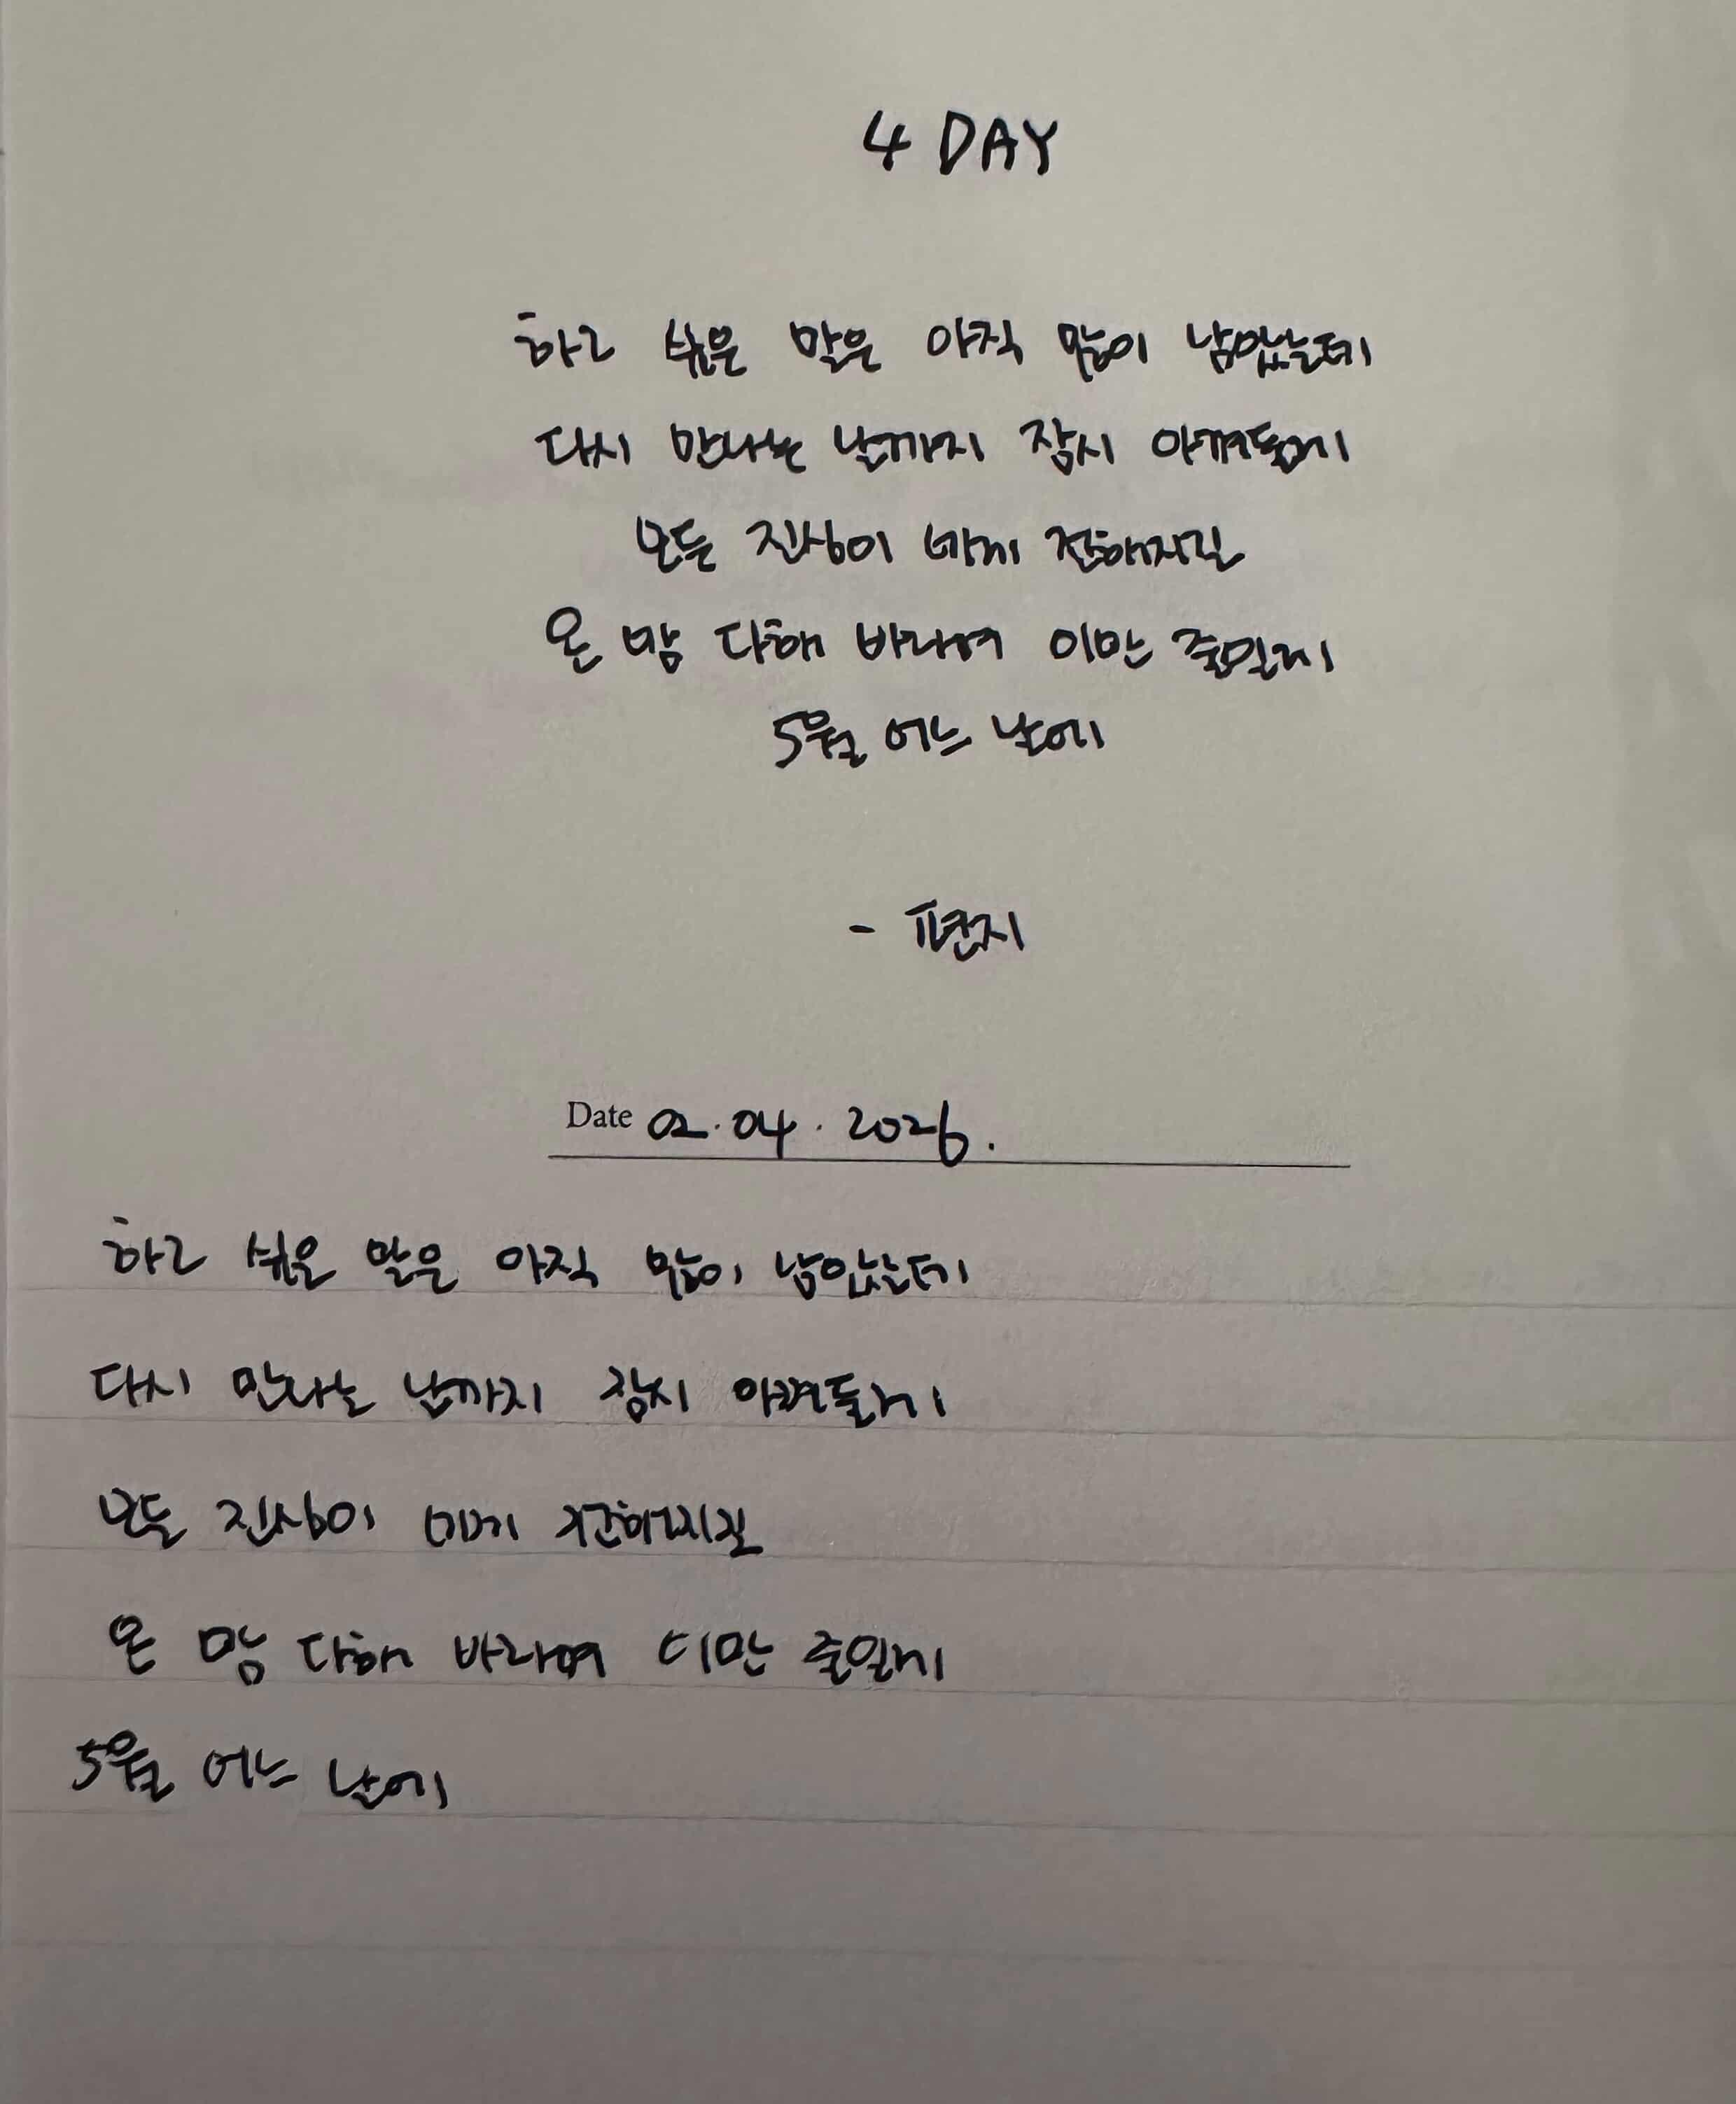 4 DAY
하고 싶은 말은 아직 많이 남았는데
다시 만나는 날까지 잠시 아껴둘게
모든 진심이 네게 전해지길
온 맘 다해 바라며 이만 줄일게
5월 어느 날에
- 편지
Date 02.04.2026.
하고 싶은 말은 아직 많이 남았는데
다시 만나는 날까지 잠시 아껴둘게
모든 진심이 네게 전해지길
온 맘 다해 바라며 이만 줄일게
5월 어느 날에